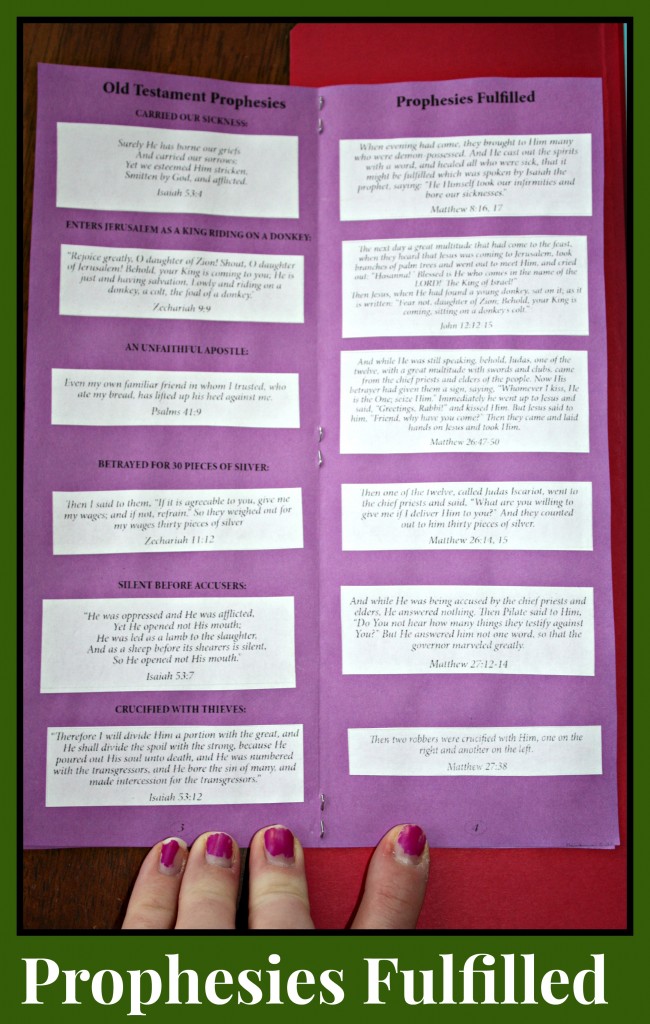 Old Testament Prophesies
CARRIED OUR SICKNESS:
Surely He has borne our griefs
And carried our sorrows;
Yet we esteemed Him stricken,
Smitten by God, and afflicted.
Isaiah 53:4
ENTERS JERUSALEM AS A KING RIDING ON A DONKEY:
"Rejoice greatly, O daughter of Zion! Shout, O daughter
of Jerusalem! Behold, your King is coming to you; He is
just and having salvation, Lowly and riding on a
donkey, a colt, the foal of a donkey."
Zechariah 9:9
AN UNFAITHFUL APOSTLE:
Even my own familiar friend in whom I trusted, who
ate my bread, has lifted up his heel against me.
Psalms 41:9
BETRAYED FOR 30 PIECES OF SILVER:
Then I said to them, "If it is agreeable to you, give me
my wages; and if not, refrain." So they weighed out for
my wages thirty pieces of silver
Zechariah 11:12
SILENT BEFORE ACCUSERS:
"He was oppressed and He was afflicted,
Yet He opened not His mouth;
He was led as a lamb to the slaughter,
And as a sheep before its shearers is silent,
So He opened not His mouth."
Isaiah 53:7
CRUCIFIED WITH THIEVES:
"Therefore I will divide Him a portion with the great, and
He shall divide the spoil with the strong, because He
poured out His soul unto death, and He was numbered
with the transgressors, and He bore the sin of many, and
made intercession for the transgressors."
Isaiah 53:12
3
Prophesies Fulfilled
When evening had come, they brought to Him many
who were demon-possessed. And He cast out the spirits
with a word, and healed all who were sick, that it
might be fulfilled which was spoken by Isaiah the
prophet, saying: "He Himself took our infirmities and
bore our sicknesses."
Matthew 8:16, 17
The next day a great multitude that had come to the feast,
when they heard that Jesus was coming to Jerusalem, took
branches of palm trees and went out to meet Him, and cried
out: "Hosanna! Blessed is He who comes in the name of the
LORD! The King of Israel!"
Then Jesus, when He had found a young donkey, sat on it; as it
is written: "Fear not, daughter of Zion, Behold, your King is
coming, sitting on a donkey's colt."
John 12:12-15
And while He was still speaking, behold, Judas, one of the
twelve, with a great multitude with swords and clubs, came
from the chief priests and elders of the people. Now His
betrayer had given them a sign, saying, "Whomever I kiss, He
is the One; seize Him." Immediately he went up to Jesus and
said, "Greetings, Rabbi!" and kissed Him. But Jesus said to
him, "Friend, why have you come?" Then they came and laid
hands on Jesus and took Him.
Matthew 26:47-50
Then one of the twelve, called Judas Iscariot, went to
the chief priests and said, "What are you willing to
give me if I deliver Him to you?" And they counted
out to him thirty pieces of silver.
Matthew 26:14, 15
And while He was being accused by the chief priests and
elders, He answered nothing. Then Pilate said to Him,
"Do You not hear how many things they testify against
You?" But He answered him not one word, so that the
governor marveled greatly.
Matthew 27:12-14
Then two robbers were crucified with Him, one on the
right and another on the left.
Matthew 27:38
4
Prophesies Fulfilled